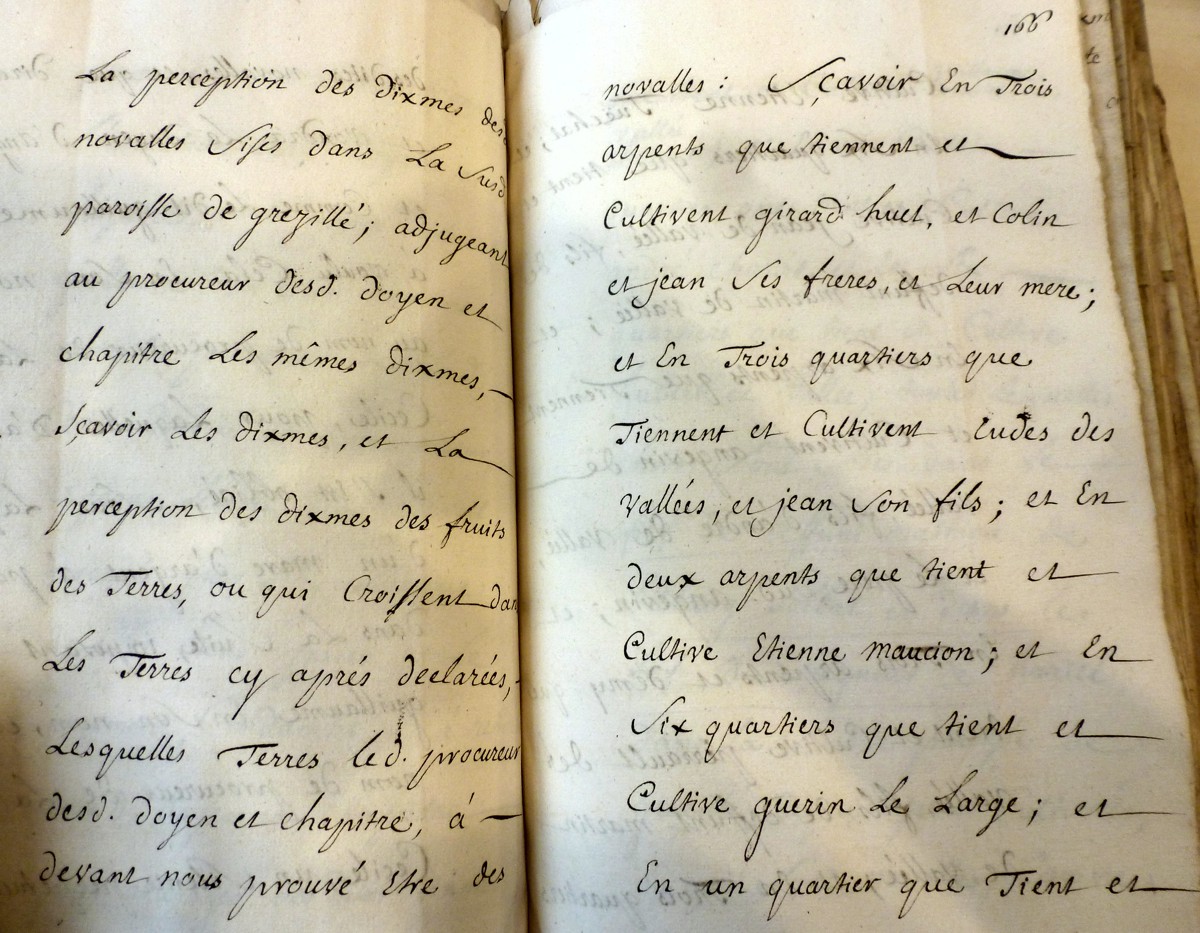 La perception des dixmes desd.
novalles Sises dans La Susd.
paroisse de grezillé; adjugeant
au procureur desd. doyen et
chapitre Les mêmes dixmes, —
sçavoir Les dixmes, et La
perception des dixmes des fruits
des Terres, ou qui Croissent dans
Les Terres cy aprés declarées, -
Lesquelles Terres led. procureur
desd. doyen et chapitre, á —
devant nous prouvé Etre des
166
novalles : Sçavoir En Trois
arpents que tiennent et
Cultivent girard huet, et Colin
et jean Ses freres, et Leur mere;
et En Trois quartiers que
Tiennent et Cultivent Eudes des
Vallées, et jean Son fils ; et En
deux arpents que tient et
Cultive Etienne maucion ; et En
Six quartiers que tient et
Cultive guerin Le Large ; et
En un quartier que Tient et